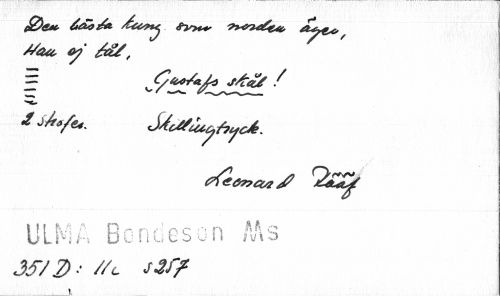 Den bästa kung som norden äger,
Han ej tål.
Gustafs skål!
2 strofer. Skillingtryck.
Leonard Rääf
ULMA Bondeson Ms
351 D: 11c s257